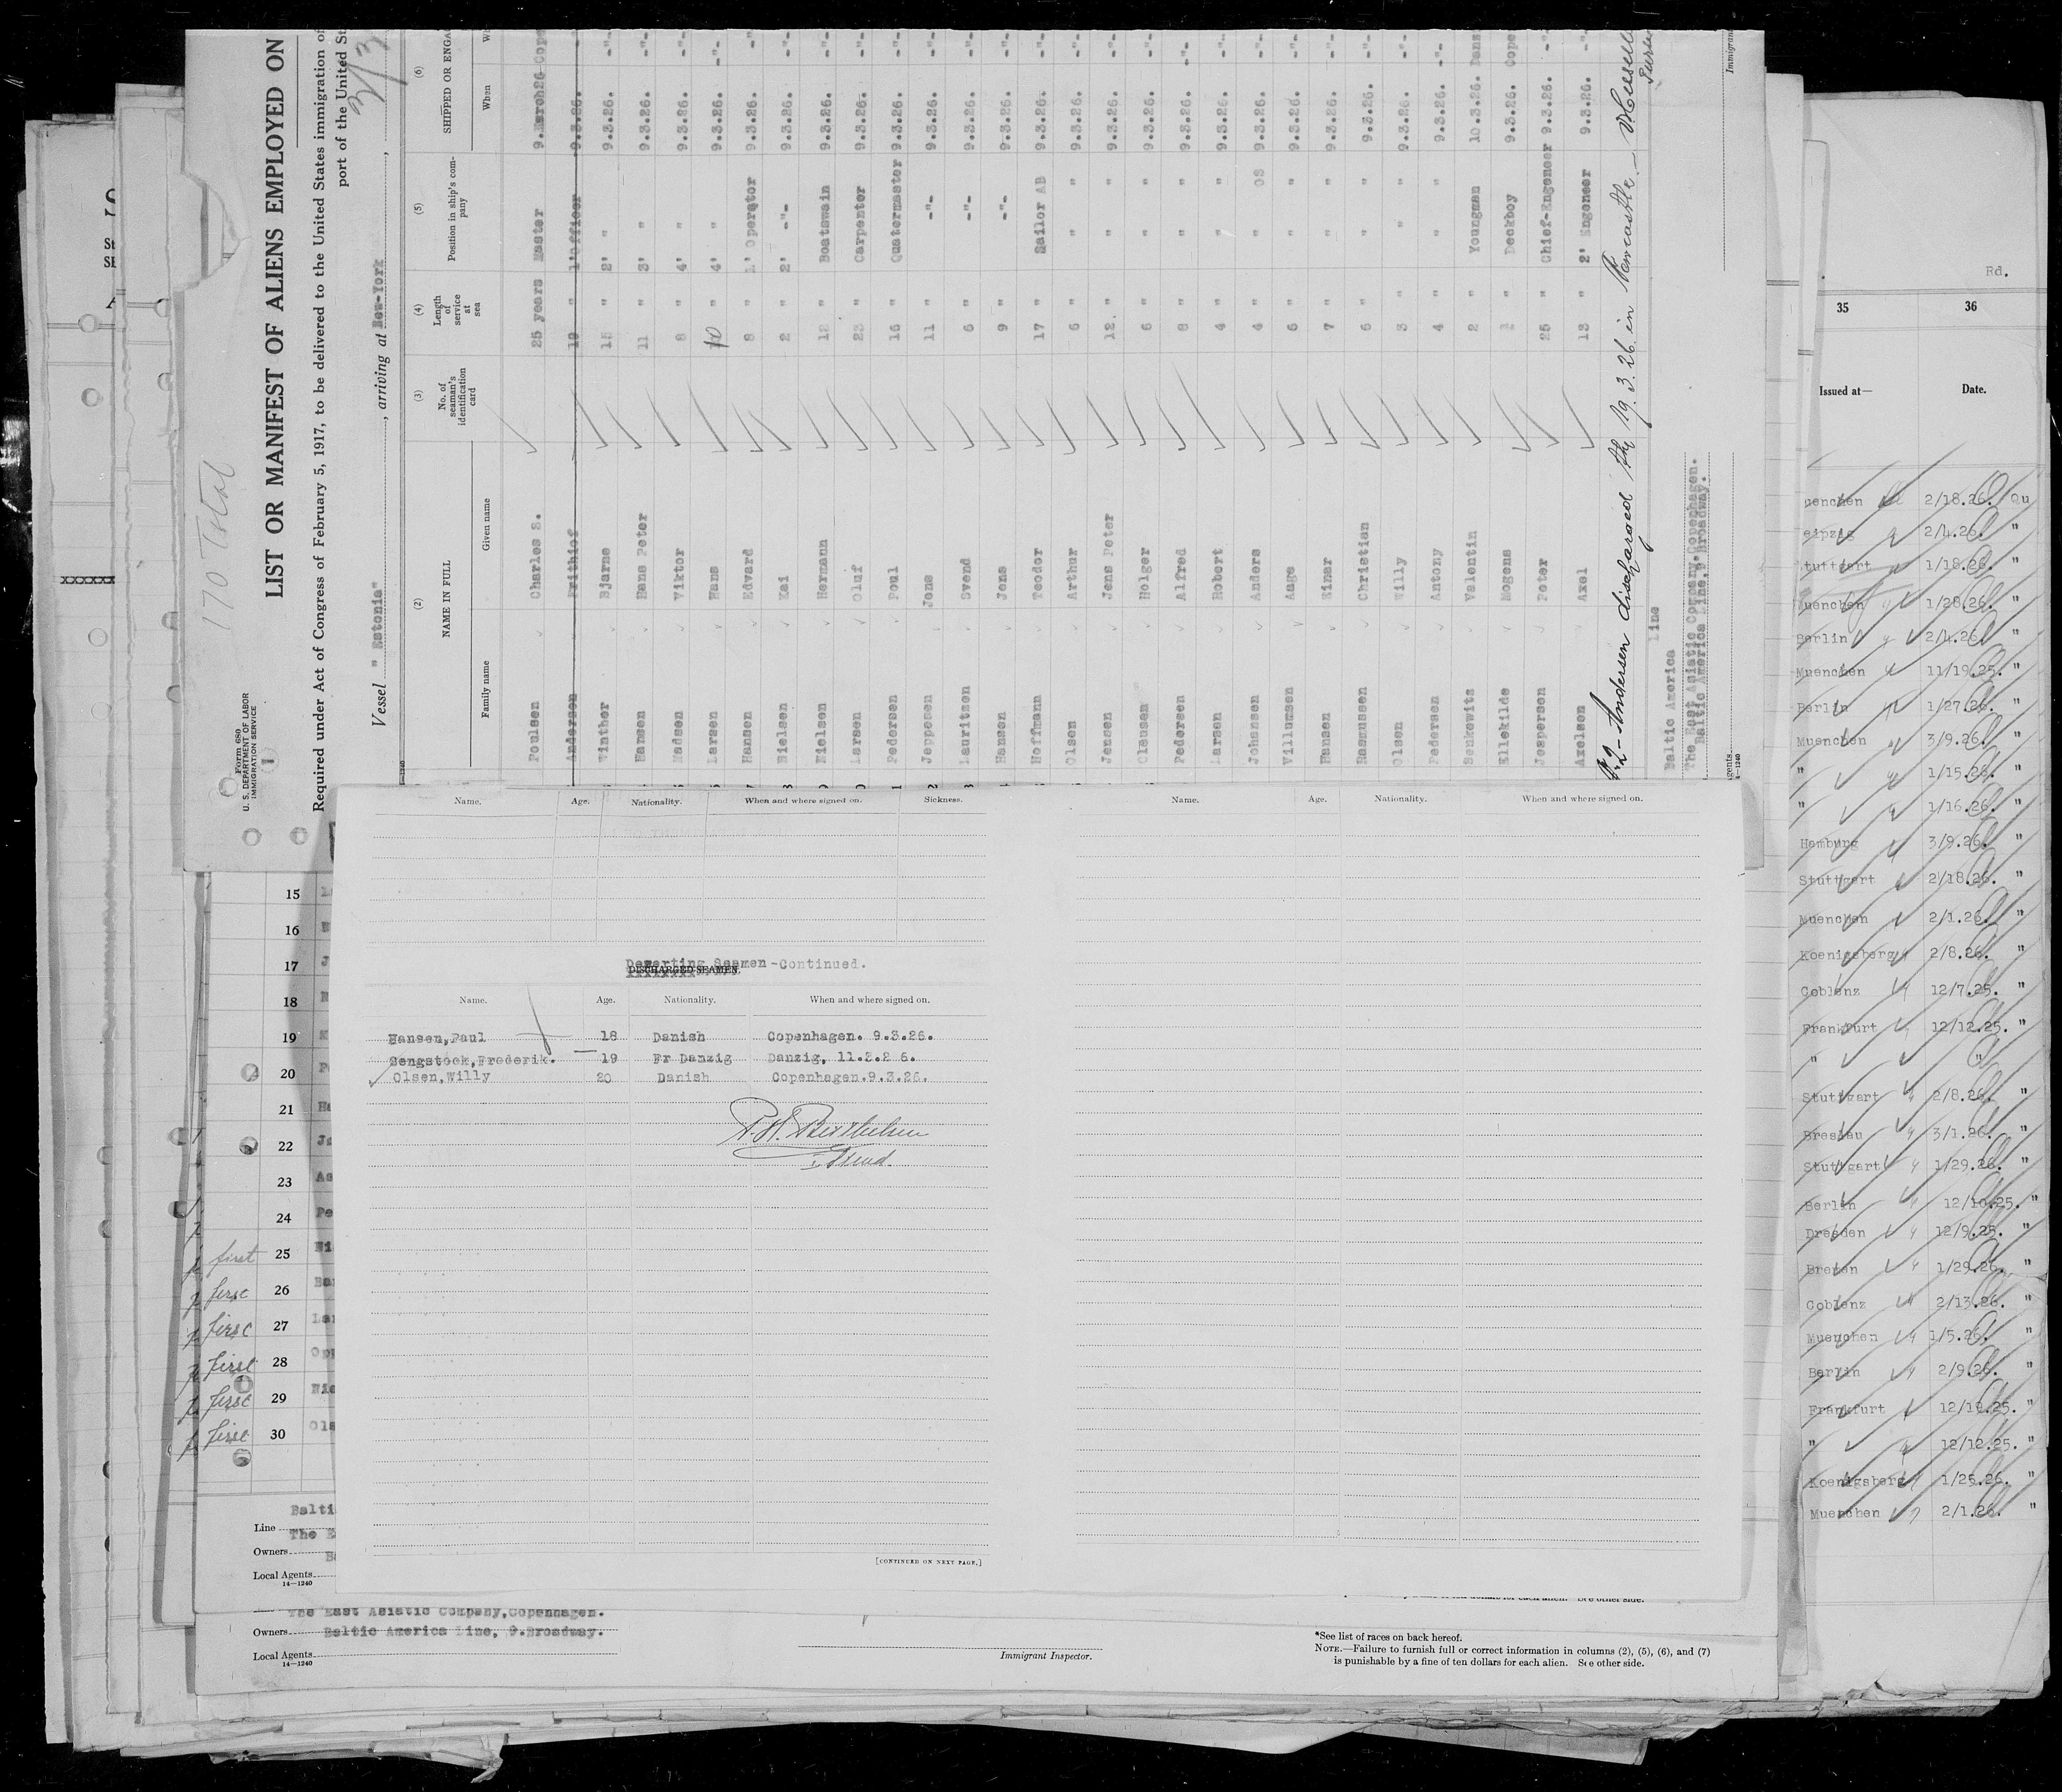 170 Total
Form 680
U. S. DEPARTMENT OF LABOR
IMMIGRATION SERVICE
LIST OR MANIFEST OF ALIENS EMPLOYED ON
Required under Act of Congress of February 5, 1917, to be delivered to the United States immigration
port of the United
Vessel " Estonia" , arriving at New-York ,
(2) (3) (4) (5) (6)
NAME IN FULL No. of seaman's identification card Length of service at sea Position in ship's company SHIPPED OR ENGA
Family name Given name When
Poulsen Charles S. 25 years Master 9.March26 Cope
Andersen Frithiof 19 " 1'officer 9.3.26. -"-
Winther Bjarne 15 " 2' " 9.3.26. -"-
Hansen Hans Peter 11 " 3' " 9.3.26. -"-
Madsen Viktor 8 " 4' " 9.3.26. -"-
Larsen Hans 10 " 4' " 9.3.26. -"-
Hansen Edvard 8 " 1' Operator 9.3.26. -"-
Nielsen Kai 2 " 2' -"- 9.3.26. -"-
Nielsen Hermann 12 " Boatswain 9.3.26. -"-
Larsen Oluf 23 " Carpenter 9.3.26. -"-
Pedersen Poul 16 " Quatermaster 9.3.26. -"-
Jeppesen Jens 11 " -"- 9.3.26. -"-
Lauritsen Svend 6 " -"- 9.3.26. -"-
Hansen Jens 9 " -"- 9.3.26. -"-
Hoffmann Teodor 17 " Sailor AB 9.3.26. -"-
Olsen Arthur 6 " " 9.3.26. -"-
Jensen Jens Peter 12. " " 9.3.26. -"-
Clausen Holger 6 " " 9.3.26. -"-
Pedersen Alfred 8 " " 9.3.26. -"-
Larsen Robert 4 " " 9.3.26. -"-
Johansen Anders 4 " OS 9.3.26. -"-
Villumsen Aage 6 " " 9.3.26. -"-
Hansen Einar 7 " " 9.3.26. -"-
Rasmussen Christian 6 " " 9.3.26. -"-
Olsen Willy 3 " " 9.3.26. -"-
Pedersen Antony 4 " " 9.3.26. -"-
Senkewits Valentin 2 " Youngman 10.3.26. Dans
Ellekilde Mogens " Deckboy 9.3.26. Cope
Jespersen Peter 25 " Chief-Engeneer 9.3.26. -"-
Axelsen Axel 13 " 2' Engeneer 9.3.26. -"-
Andersen discharged the 19.3.26. in Newcastle
Baltic America Line
The East Asiatic Company, Copenhagen.
Baltic America Line, 9.Broadway.
gents
14—1240
Immigrant
Name. Age. Nationality. When and where signed on. Sickness.
DISCHARGED SEAMEN.
Deserting Seamen -Continued.
Name. Age. Nationality. When and where signed on.
Hansen,Paul 18 Danish Copenhagen. 9.3.26.
Sengstock,Frederik. 19 Fr Danzig Danzig, 11.3.26.
Olsen,Willy 20 Danish Copenhagen.9.3.26.
[CONTINUED ON NEXT PAGE.]
Name. Age. Nationality. When and where signed on.
15
16
17
18
19
20
21
22
23 As
24 Pe
first 25
first 26
first 27
first 28
first 29
first 30 Ols
Balti
Line
The E
Owners
Local Agents
14—1240
The East Asiatic Company,Copenhagen.
Owners
Baltic America Line, 9.Broadway.
Local Agents
14—1240
Immigrant Inspector.
*See list of races on back hereof.
NOTE.—Failure to furnish full or correct information in columns (2), (5), (6), and (7)
is punishable by a fine of ten dollars for each alien. See other side.
Rd.
35 36
Issued at— Date.
uenchen 2/18.26. Qu
eipzig 2/4.26. "
tuttgart 1/18.26. "
Muenchen 1/28.26. "
Berlin 2/4.26. "
Muenchen 11/19.25. "
Berlin 1/27.26. "
Muenchen 3/9.26. "
" 1/15.26. "
" 1/16.26. "
Hamburg 3/9.26. "
Stuttgart 2/18.26. "
Muenchen 2/1.26. "
Koenigsberg 2/8.26. "
Coblenz 12/7.25. "
Frankfurt 12/12.25. "
" " "
Stuttgart 2/8.26. "
Breslau 3/1.26. "
Stuttgart 1/29.26. "
Berlin 12/10.25. "
Dresden 12/9.25. "
Bremen 1/29.26. "
Coblenz 2/13.26. "
Muenchen 1/5.26. "
Berlin 2/9.26. "
Frankfurt 12/12.25. "
" 12/12.25. "
Koenigsberg 1/25.26. "
Muenchen 2/1.26. "